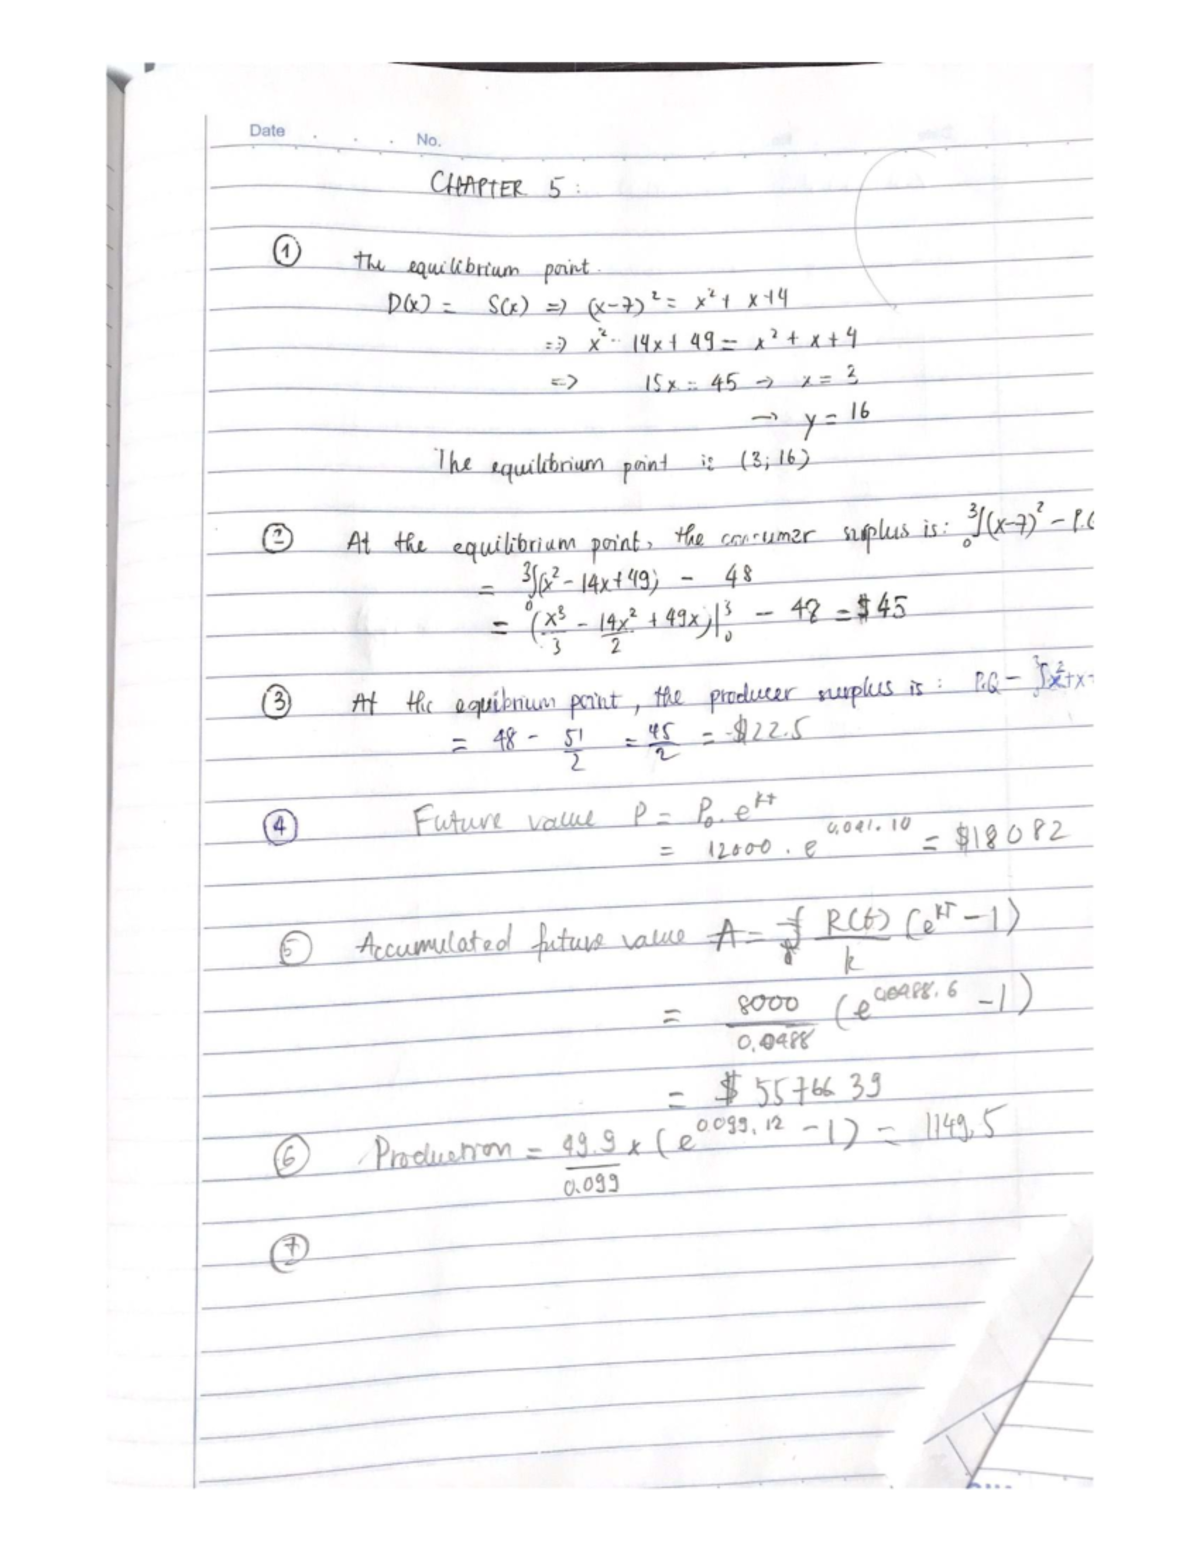 Date No.
CHAPTER 5:
① The equilibrium point.
D(x) = S(x) => (x-7)² = x² + x+4
=> x² - 14x + 49 = x² + x + 4
=> 15x = 45 → x = 3
→ y = 16
The equilibrium point is (3; 16)
② At the equilibrium point, the consumer surplus is: ³∫₀(x-7)² - P.Q
= ³∫₀(x² - 14x + 49) - 48
= (x³/3 - 14x²/2 + 49x)|³₀ - 48 = $45
③ At the equibrium point, the producer surplus is: P.Q - ³∫x²+x+
= 48 - 51/2 = 45/2 = $22.5
④ Future value P = P₀.e^kt
= 12000 . e^0,041.10 = $18082
⑤ Accumulated future value A = R(t)/k (e^kT - 1)
= 8000/0,0488 (e^0,0488.6 - 1)
= $ 55766 39
⑥ Production = 49.9/0.099 x (e^0.099.12 - 1) = 1149,5
⑦